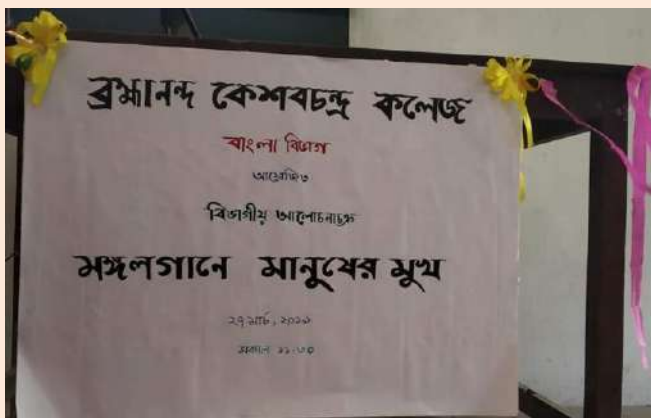 ব্রহ্মানন্দ কেশবচন্দ্র কলেজ
বাংলা বিভাগ
আয়োজিত
বিভাগীয় আলোচনাচক্র
মঙ্গলগানে মানুষের মুখ
২৭ মার্চ, ২০১৯
সকাল ১১.৩০